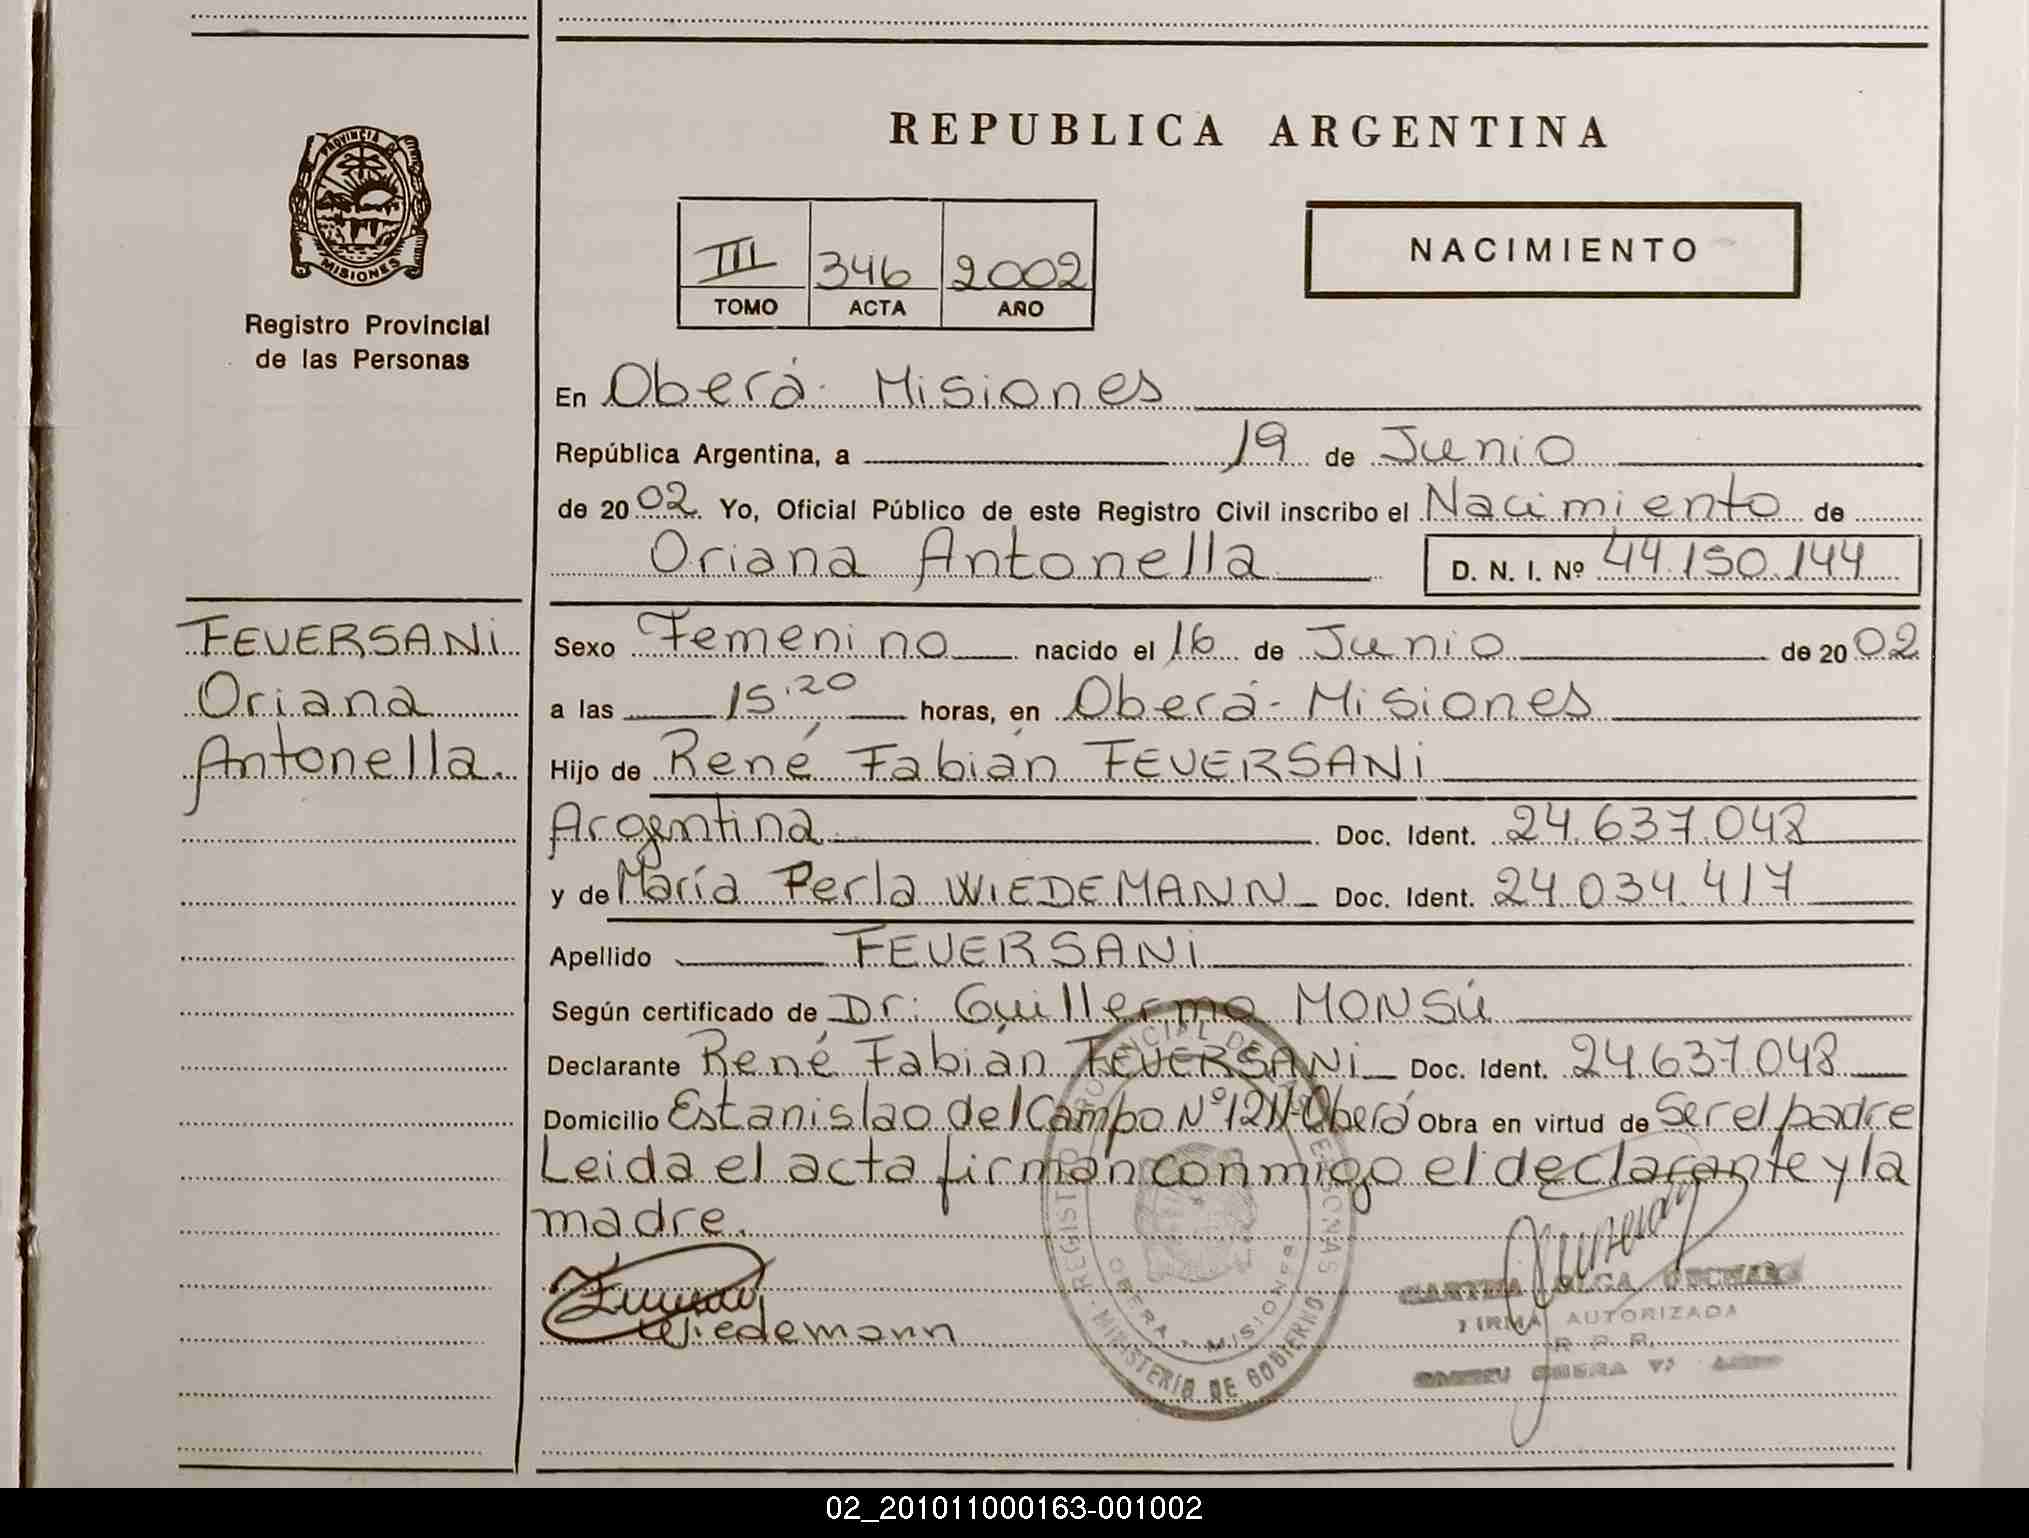 REPUBLICA ARGENTINA
PROVINCIA D
MISIONES
Registro Provincial
de las Personas
III 346 2002
TOMO ACTA AÑO
NACIMIENTO
En Oberá - Misiones
República Argentina, a 19 de Junio
de 2002 Yo, Oficial Público de este Registro Civil inscribo el Nacimiento de
Oriana Antonella D. N. I. Nº 44.150.144
FEVERSANI
Oriana
Antonella.
Sexo Femenino nacido el 16 de Junio de 2002
a las 15:20 horas, en Oberá - Misiones
Hijo de René Fabián FEVERSANI
Argentina Doc. Ident. 24.637.048
y de María Perla WIEDEMANN Doc. Ident. 24.034.417
Apellido FEVERSANI
Según certificado de Dr: Guillermo MONSÚ
Declarante René Fabián FEVERSANI Doc. Ident. 24.637.048
Domicilio Estanislao del Campo Nº Oberá Obra en virtud de Ser el padre
Leida el acta firman conmigo el declarante y la
madre.
Wiedemann
REGISTRO PROVINCIAL DE LAS PERSONAS
OBERA - MISIONES
MINISTERIO DE GOBIERNO
OLGA
FIRMA AUTORIZADA
R. P. P.
OBERA
02_201011000163-001002